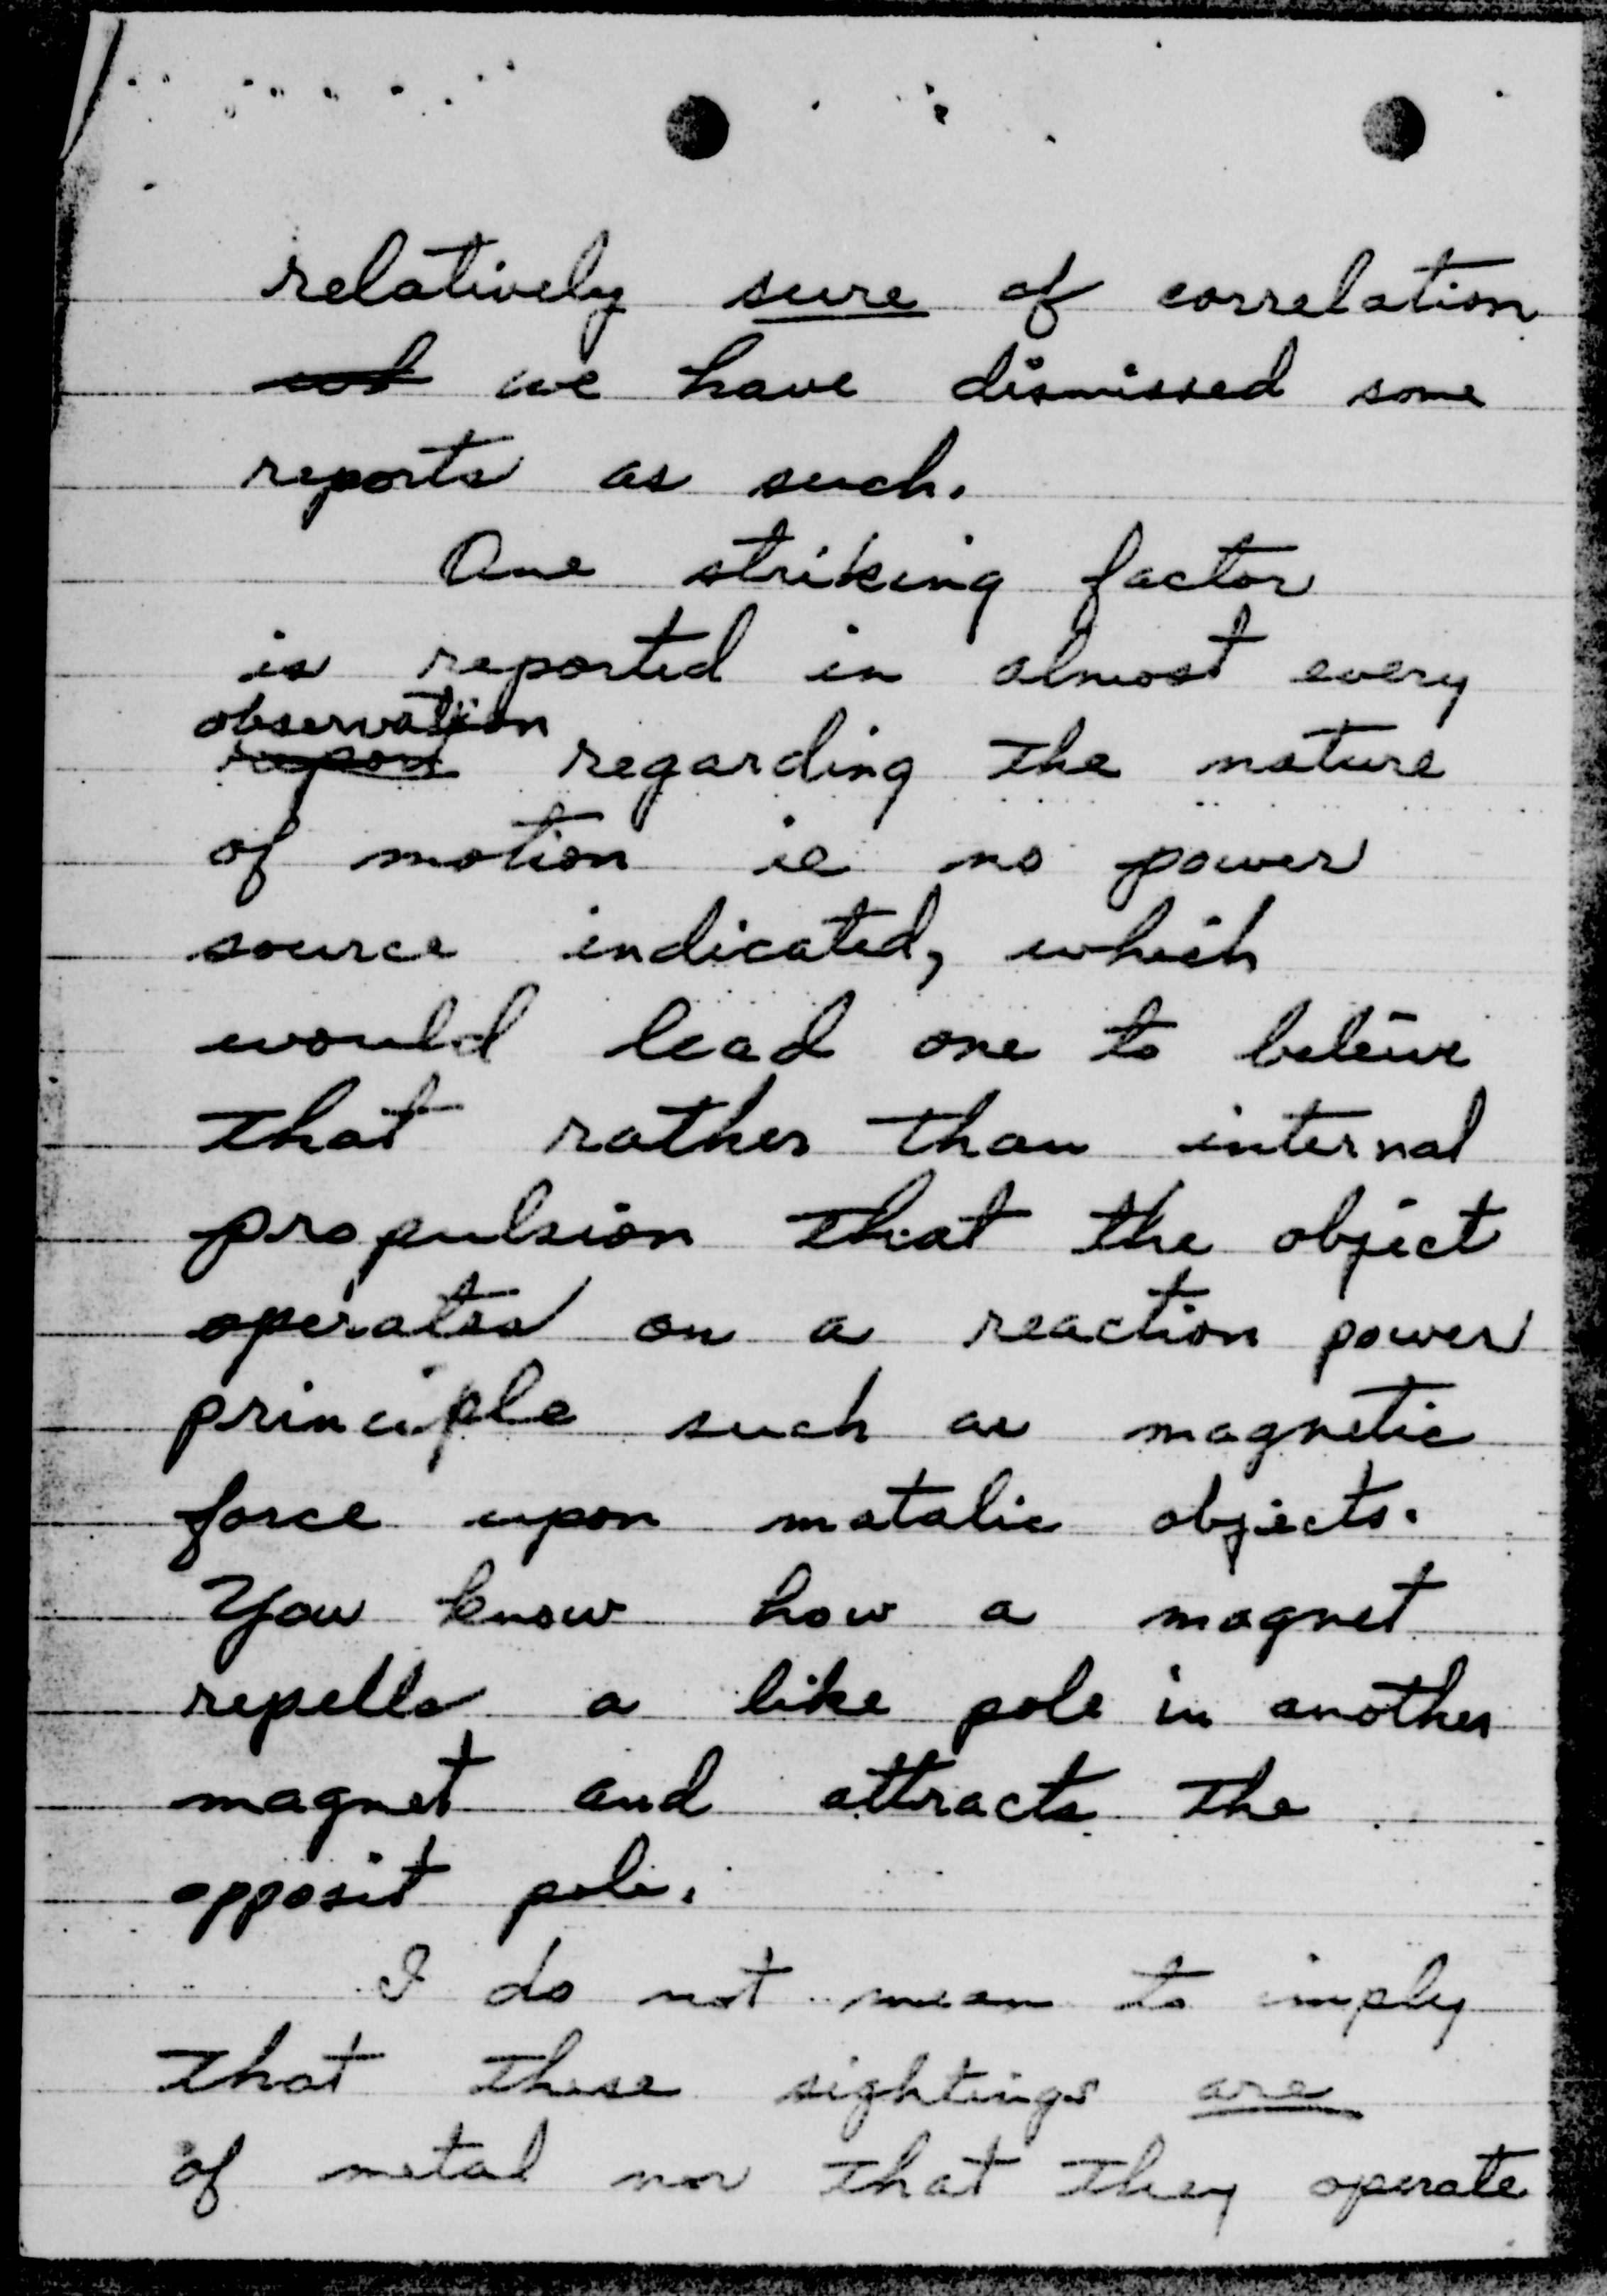 relatively sure of correlation
we have dismissed some
reports as such.
One striking factor
is reported in almost every
observation
repor regarding the nature
of motion ie no power
source indicated, which
would lead one to beleive
that rather than internal
propulsion that the object
operates on a reaction power
principle such as magnetic
force upon matalic objects.
You know how a magnet
repells a like pole in another
magnet and attracts the
opposit pole.
I do not mean to imply
that these sightings are
of metal nor that they operate